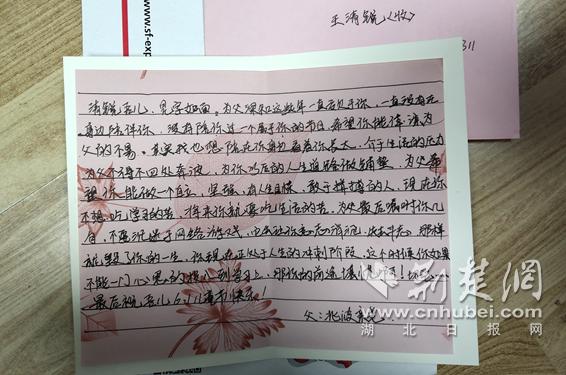 www.sf-exp
王清锐(收)
311
清锐吾儿,见字如面。为父深知这些年一直亏欠于你,一直没有在
身边陪伴你,没有陪你过一个属于你的节日,希望你能体谅为
父的不易。其实我也想陪在你身边看着你长大,介于生活的压力
为父不得不四处奔波,为你以后的人生道路做铺垫,为父希
望你能做一个自立、坚强、有人生目标、敢于拼搏的人,现在你
不想吃学习的苦,将来你就要吃生活的苦。为父最后嘱咐你几
句,不要沉迷于网络游戏,
就毁了你的一生,你现在正处于人生的冲刺阶段,这个时候你如果
不能一门心思的 学习上,那你的前途
最后祝吾儿6.1儿童节快乐!
父:
荆楚網
www.cnhubei.com
湖北日报网